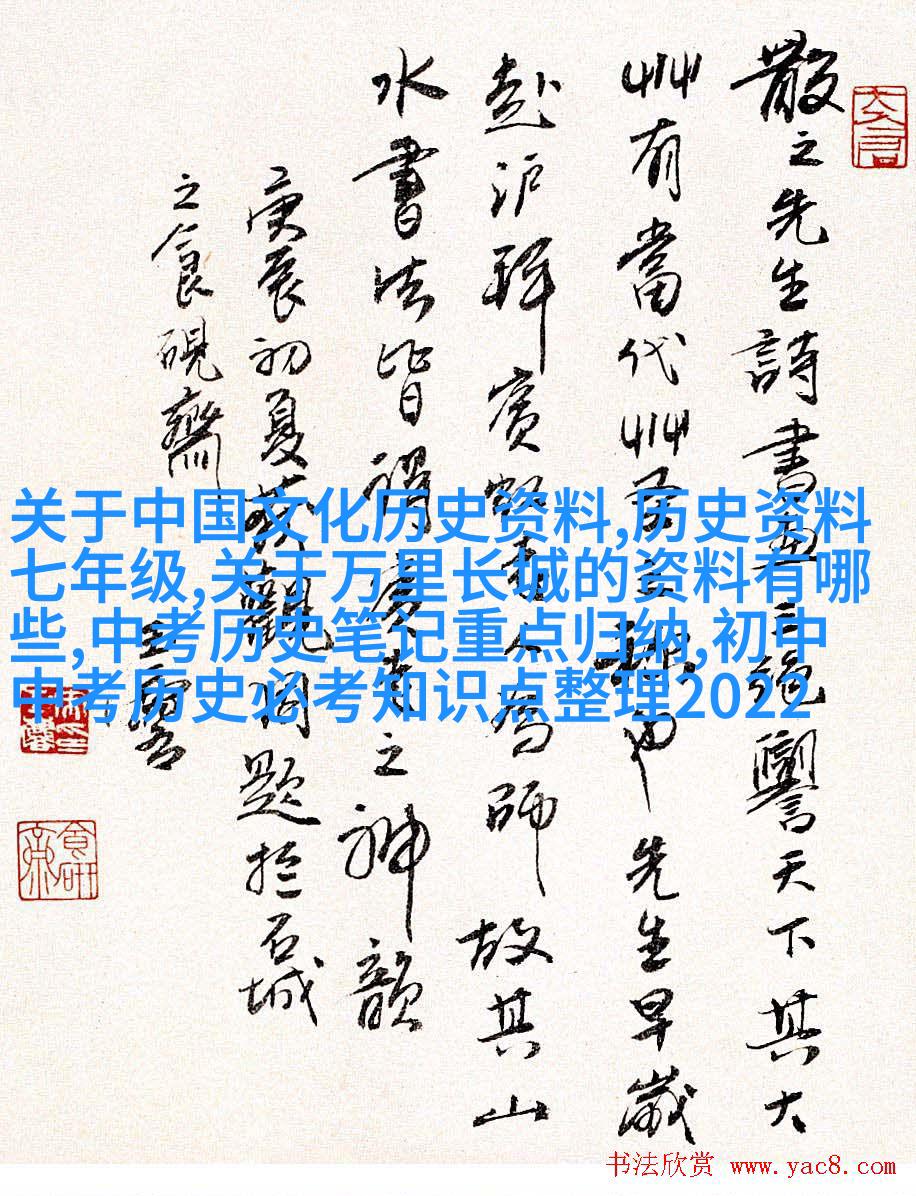 散之先生詩書畫三絶譽天下其大
艸有當代艸聖之稱也先生早歲
赴沪拜賓虹老人為師故其山
水書法皆得賓老之神韻
庚辰初夏萧觀明题於石城
之食硯齋
关于中国文化历史资料,历史资料
七年级,关于万里长城的资料有哪
些,中考历史笔记重点归纳,初中
中考历史必考知识点整理2022
书法欣赏 www.yac8.com